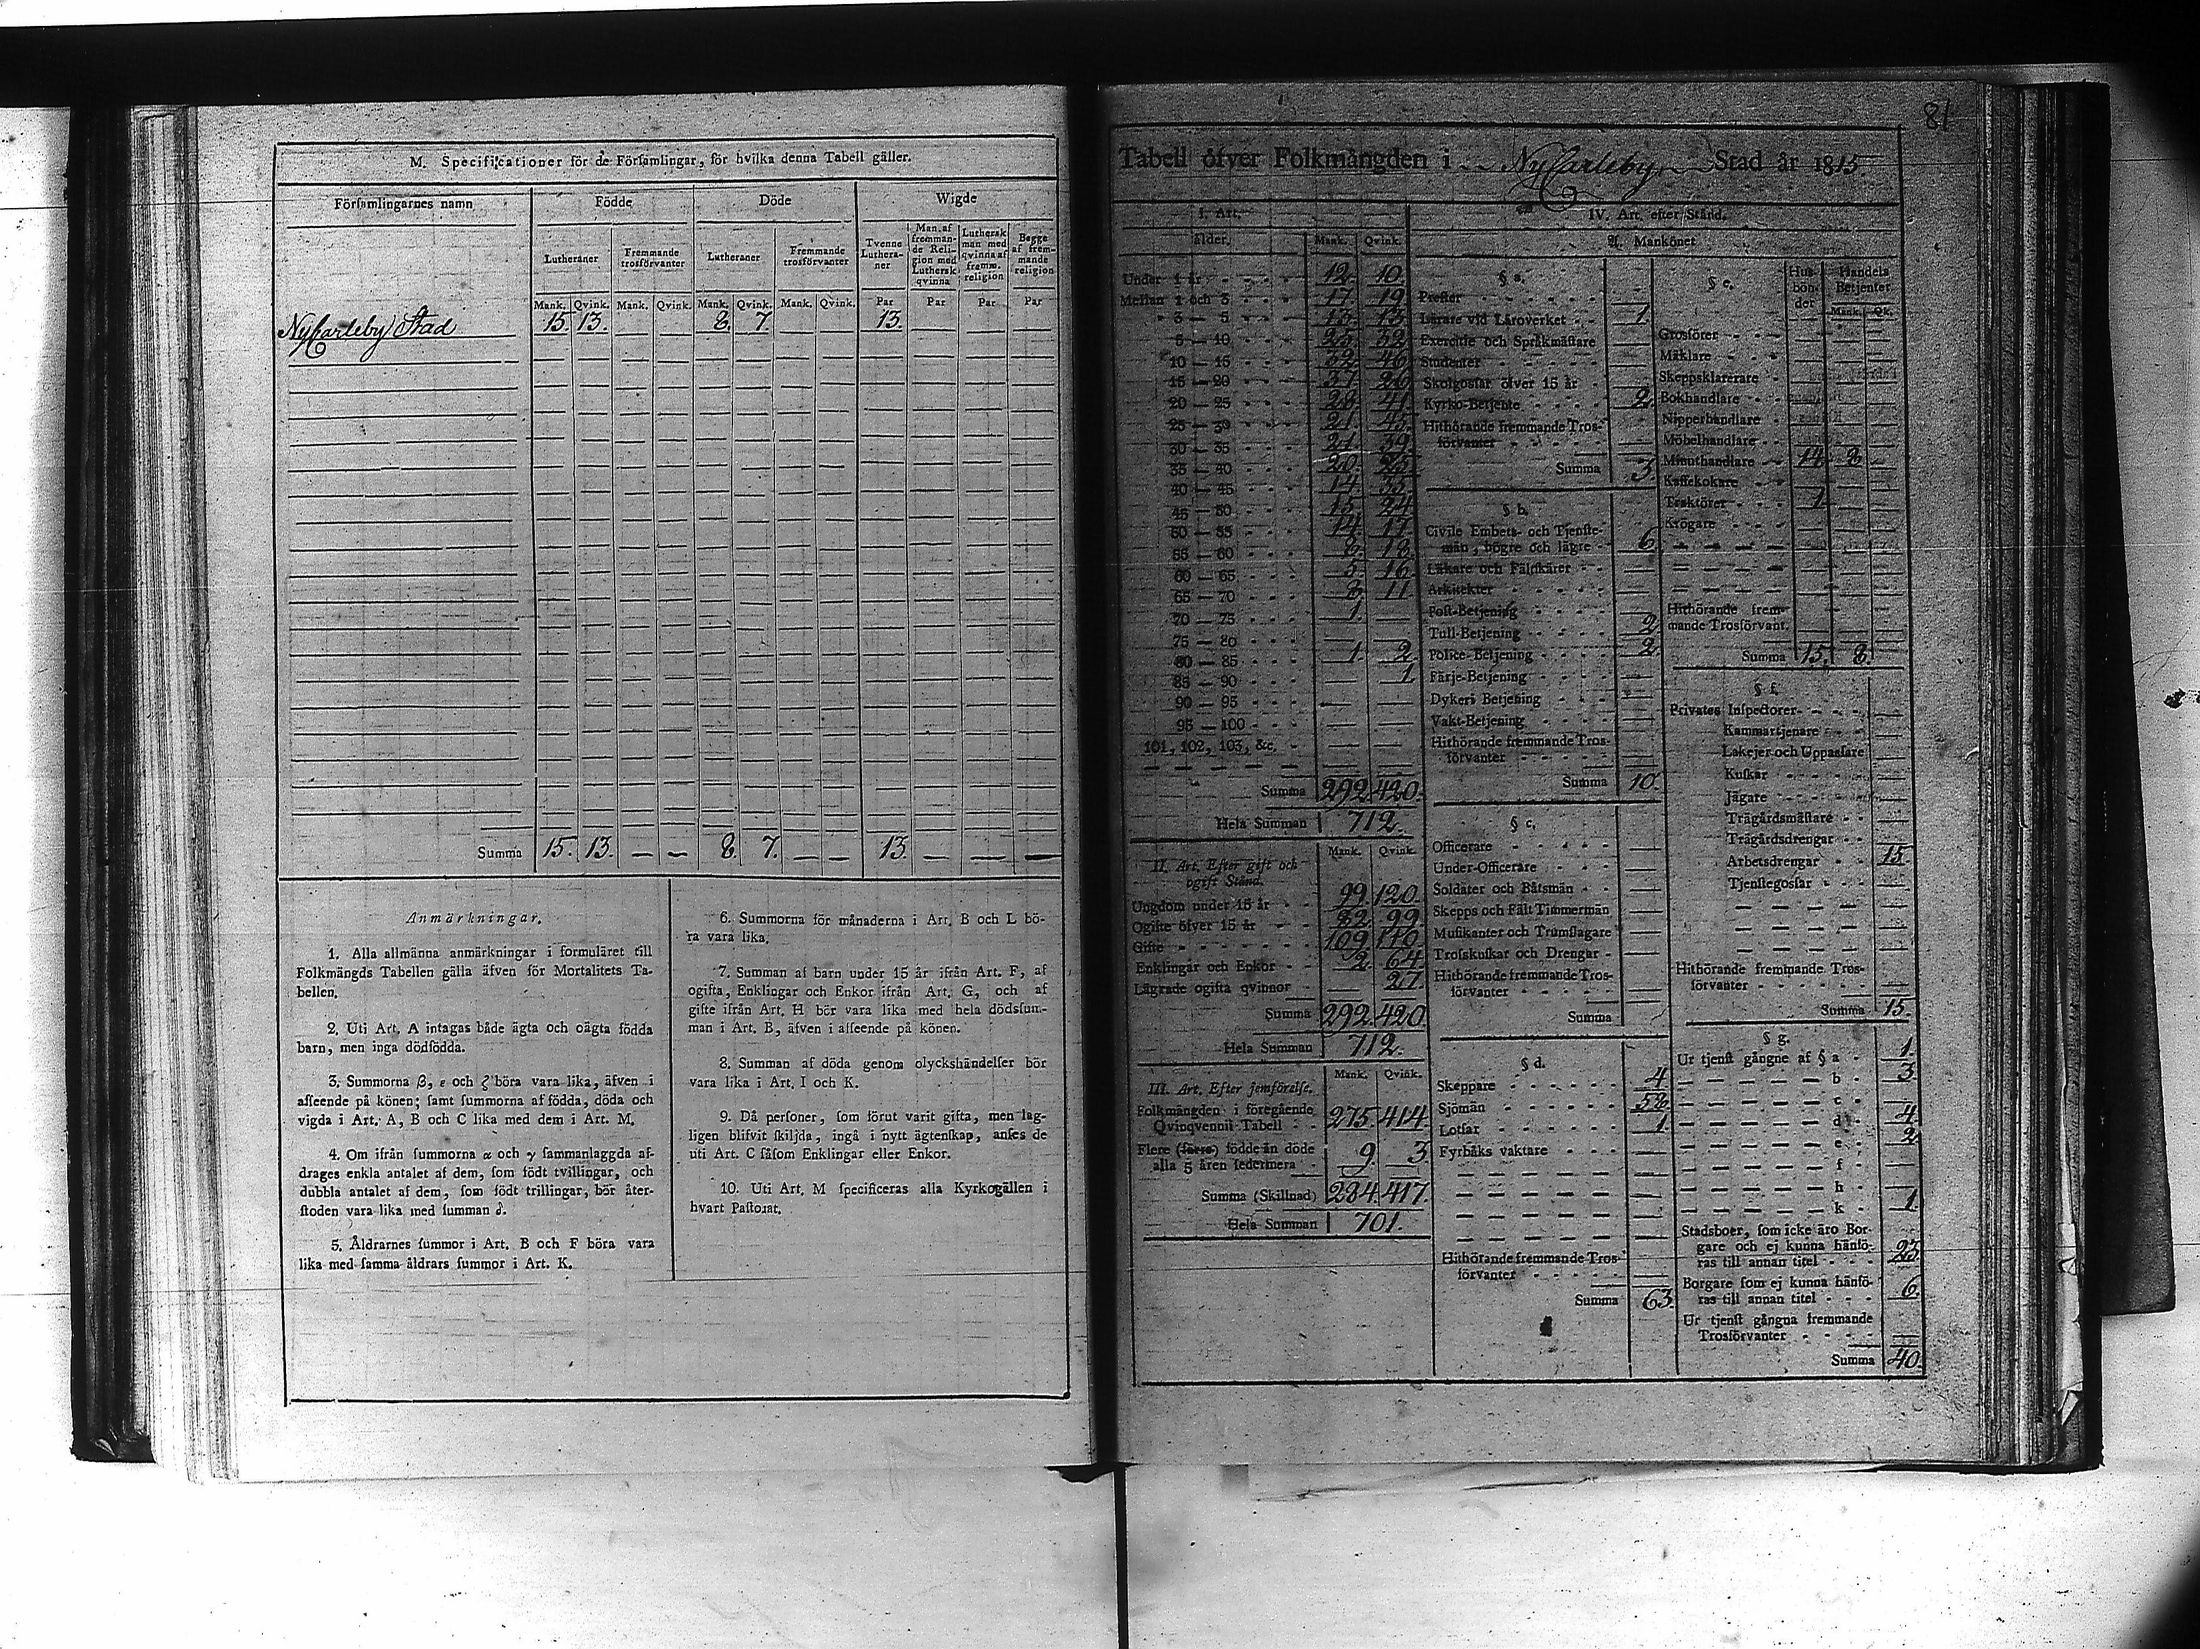 M. Specificationer för de Förſamlingar, för hvilka denna Tabell gäller.
Förſamlingarnes namn
Födde
Döde
Wigde
Lutheraner
Fremmande trosförvanter
Lutheraner
Fremmande trosförvanter
Tvenne Lutheraner
Man af fremmande Religion med Luthersk qvinna
Luthersk man med qvinna af framm. religion
Begge af fremmande religion
Mank. Qvink. Mank. Qvink. Mank. Qvink. Mank. Qvink. Par Par Par Par
NyCarleby Stad 15. 13. 8. 7. 13.
Summa 15. 13. — — 8. 7. — — 13. — — —
Anmärkningar.
1. Alla allmänna anmärkningar i formuläret till
Folkmängds Tabellen gälla äfven för Mortalitets Ta-
bellen.
2. Uti Art. A intagas både ägta och oägta födda
barn, men inga dödfödda.
3. Summorna β, ε och ζ böra vara lika, äfven i
afſeende på könen; ſamt ſummorna af födda, döda och
vigda i Art. A, B och C lika med dem i Art. M.
4. Om ifrån ſummorna α och γ ſammanlaggda af-
drages enkla antalet af dem, ſom födt tvillingar, och
dubbla antalet af dem, ſom födt trillingar, bör åter-
ſtoden vara lika med ſumman δ.
5. Åldrarnes ſummor i Art. B och F böra vara
lika med ſamma åldrars ſummor i Art. K.
6. Summorna för månaderna i Art. B och L bö-
ra vara lika.
7. Summan af barn under 15 år ifrån Art. F, af
ogifta, Enklingar och Enkor ifrån Art. G, och af
gifte ifrån Art. H bör vara lika med hela dödsſum-
man i Art. B, äfven i afſeende på könen.
8. Summan af döda genom olyckshändelſer bör
vara lika i Art. I och K.
9. Då perſoner, ſom förut varit gifta, men lag-
ligen blifvit ſkiljda, ingå i nytt ägtenſkap, anſes de
uti Art. C ſåſom Enklingar eller Enkor.
10. Uti Art. M ſpecificeras alla Kyrkogällen i
hvart Paſtorat.
81
Tabell öfver Folkmängden i NyCarleby Stad år 1815
I. Art.
ålder. Mank. Qvink.
Under 1 år 12. 10.
Mellan 1 och 3 17. 19.
3 — 5 13. 13.
5 — 10 25. 32.
10 — 15 32. 46.
15 — 20 37. 26.
20 — 25 28. 41.
25 — 30 21. 43.
30 — 35 21. 39.
35 — 40 20. 25.
40 — 45 14. 35.
45 — 50 15. 24.
50 — 55 14. 17.
55 — 60 8. 18.
60 — 65 5. 16.
65 — 70 8. 11.
70 — 75 1. —
75 — 80 — —
80 — 85 1. 2.
85 — 90 1.
90 — 95 — —
95 — 100 — —
101, 102, 103, &c. — —
Summa 292. 420.
Hela Summan 712.
II. Art. Efter gift och ogift Stånd. Mank. Qvink.
Ungdom under 15 år 99. 120.
Ogifte öfver 15 år 82. 99.
Gifte 109. 110.
Enklingar och Enkor 2. 64.
Lägrade ogifta qvinnor 27.
Summa 292. 420.
Hela Summan 712.
III. Art. Efter jemförelſe. Mank. Qvink.
Folkmängden i föregående
Qvinqvennii Tabell 275. 414.
Flere (färre) födde än döde
alla 5 åren ſedermera 9. 3.
Summa (Skillnad) 284. 417.
Hela Summan 701.
IV. Art. efter Stånd.
A. Mankönet
§ a.
Preſter
Lärare vid Läroverket 1.
Exercitie och Språkmäſtare
Studenter
Skolgoſſar öfver 15 år
Kyrko-Betjente 2.
Hithörande fremmande Tros-
förvanter
Summa 3.
§ b.
Civile Embets- och Tjenſte-
män, högre och lägre 6.
Läkare och Fältſkärer
Arkitekter
Poſt-Betjening
Tull-Betjening 2.
Police-Betjening 2.
Färje-Betjening
Dykeri Betjening
Vakt-Betjening
Hithörande fremmande Tros-
förvanter
Summa 10.
§ c.
Officerare
Under-Officerare
Soldater och Båtsmän
Skepps och Fält Timmermän
Muſikanter och Trumſlagare
Troſskuſkar och Drengar
Hithörande fremmande Tros-
förvanter
Summa
§ d.
Skeppare 4.
Sjömän 58.
Lotſar 1.
Fyrbåks vaktare
Hithörande fremmande Tros-
förvanter
Summa 63.
§ e.
Husbönder
Handels Betjenter
Mank. Qk.
Grosſörer
Mäklare
Skeppsklarerare
Bokhandlare
Nipperhandlare
Möbelhandlare
Minuthandlare 14. 8.
Kaffekokare
Traktörer 1.
Krögare
Hithörande frem-
mande Trosförvant.
Summa 15. 8.
§ f.
Privates Inſpectorer
Kammartjenare
Lakejer och Uppaſſare
Kuſkar
Jägare
Trägårdsmäſtare
Trägårdsdrengar
Arbetsdrengar 15.
Tjenſtegoſſar
Hithörande fremmande Tros-
förvanter
Summa 15.
§ g.
Ur tjenſt gångne af § a 1.
b 3.
c
d 4.
e 2.
f
h
k 1.
Stadsboer, ſom icke äro Bor-
gare och ej kunna hänfö-
ras till annan titel 23.
Borgare ſom ej kunna hänfö-
ras till annan titel 6.
Ur tjenſt gångna fremmande
Trosförvanter
Summa 40.